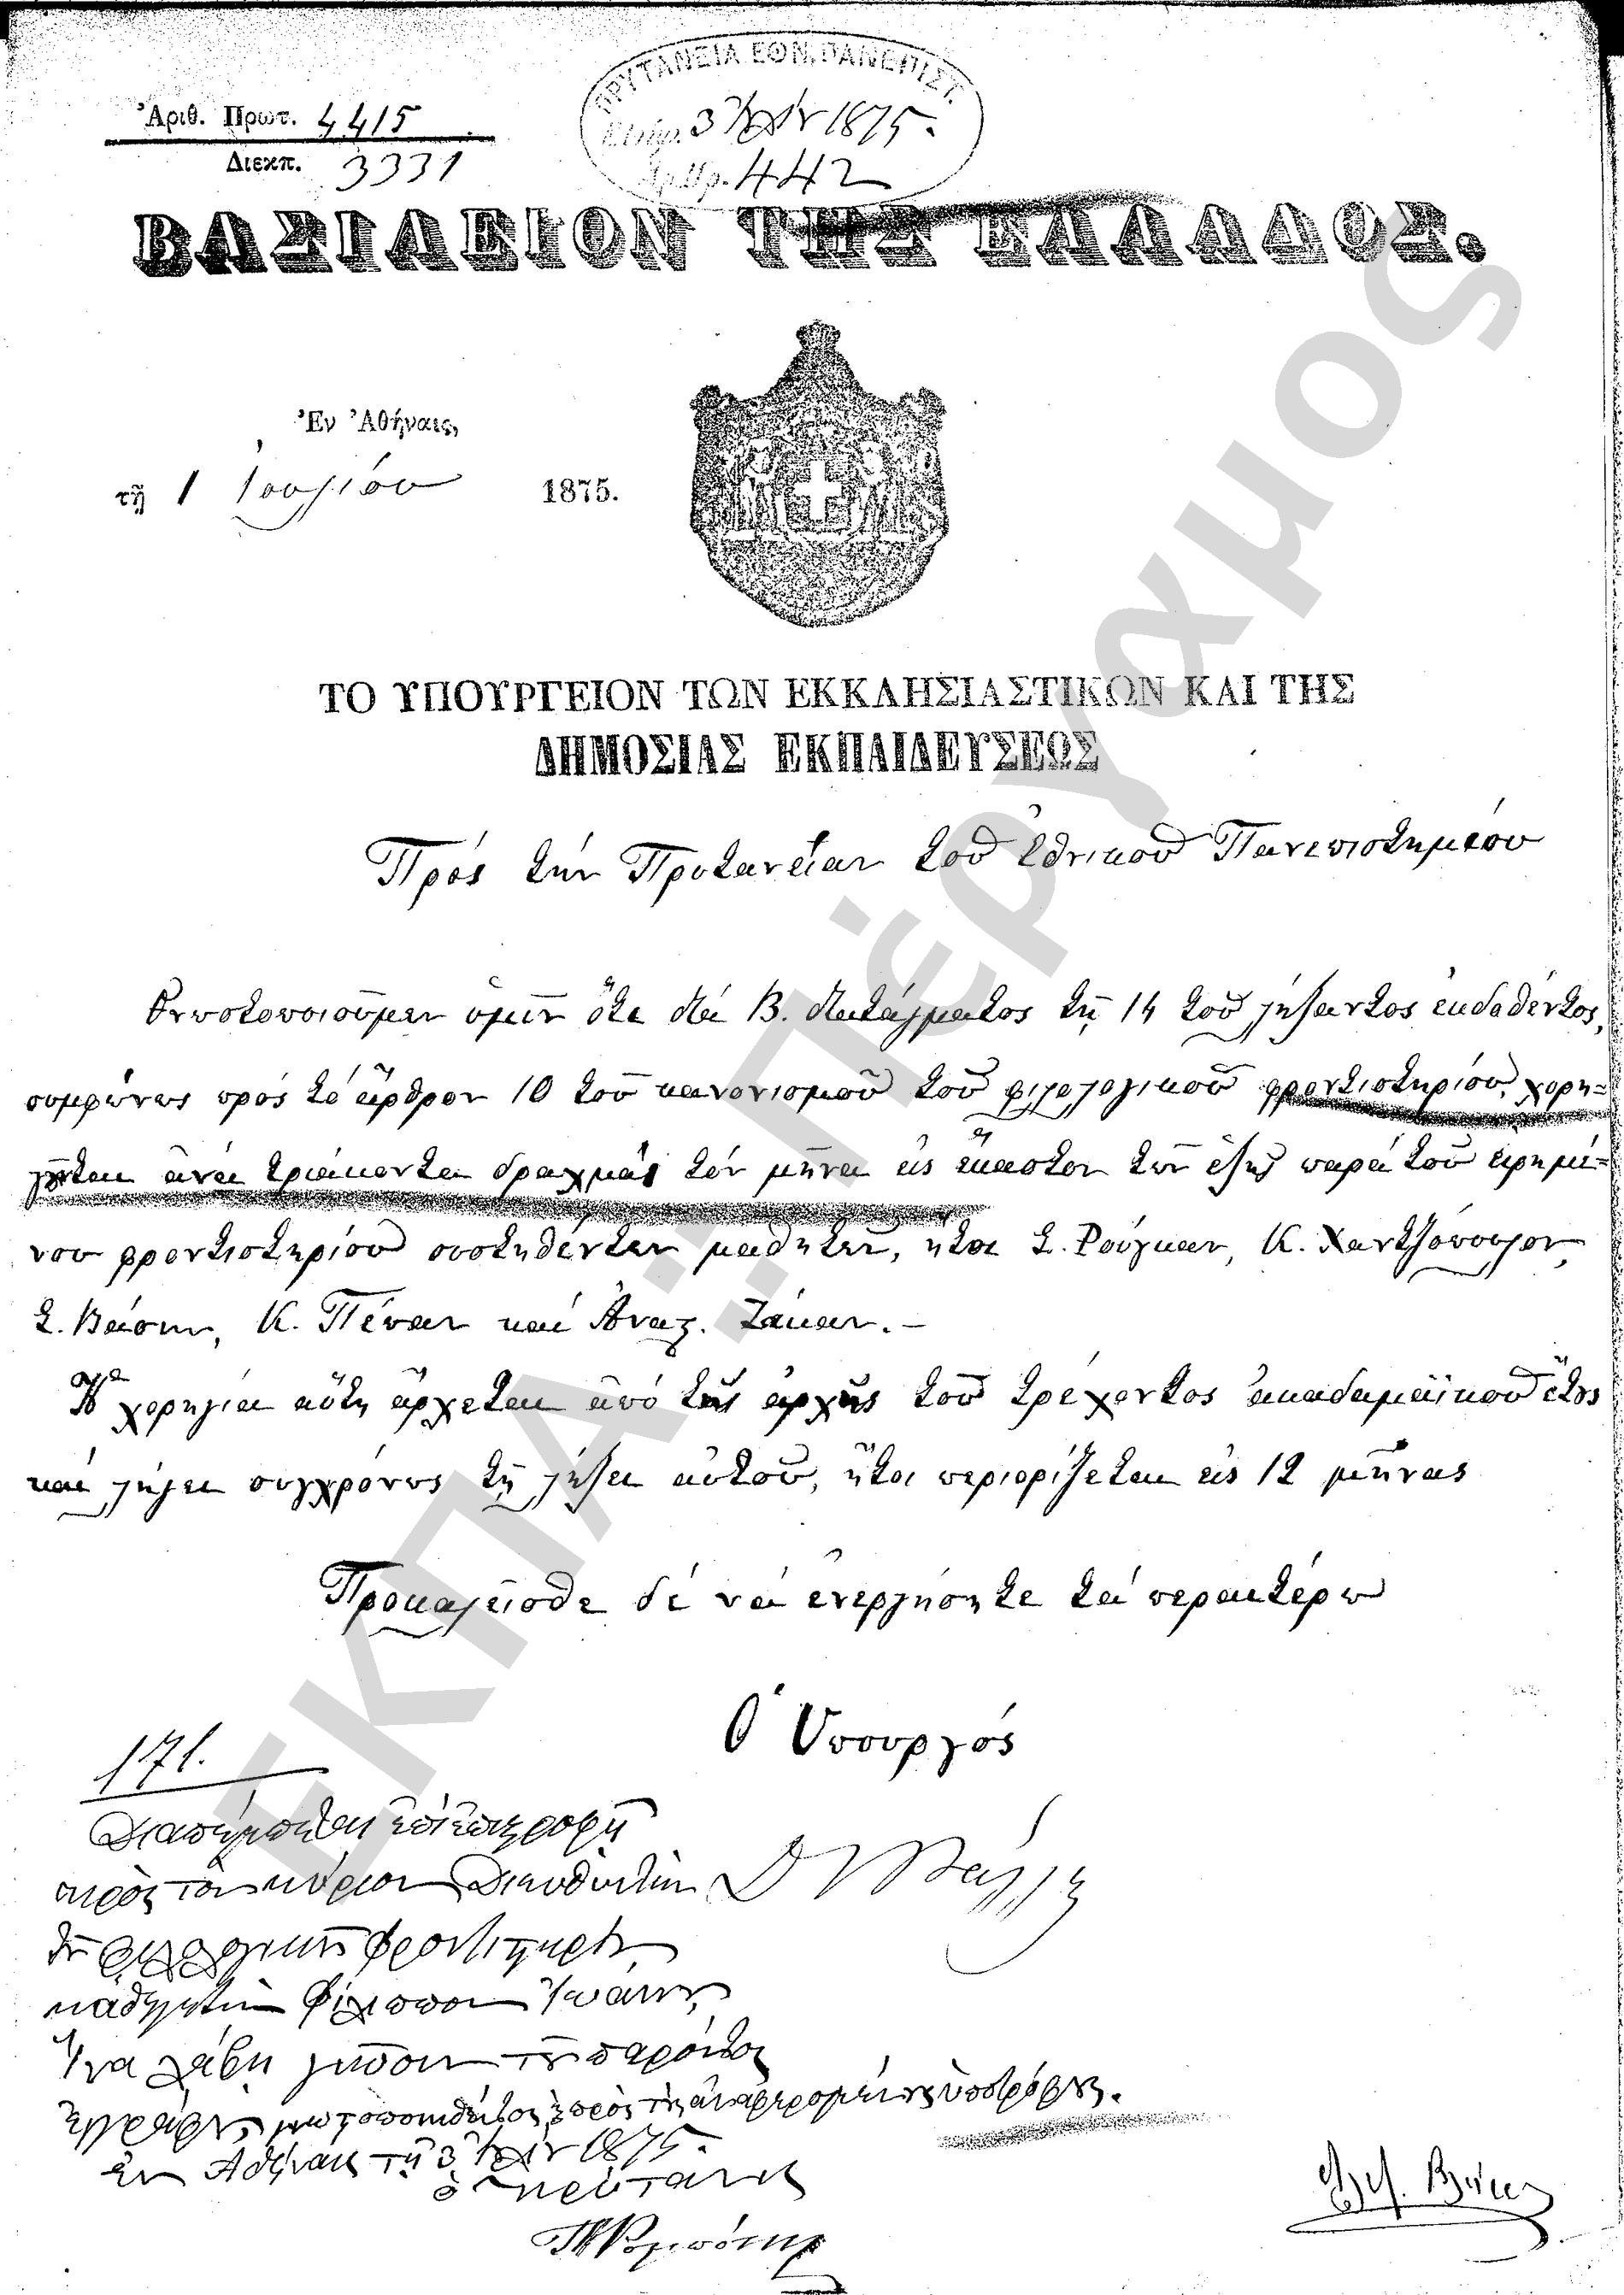 Ἀριθ. Πρωτ. 4415
Διεκπ. 3331
ΠΡΥΤΑΝΕΙΑ ΕΘΝ. ΠΑΝΕΠΙΣΤ.
3 1875.
Ἀρ. Πρ. 442
ΒΑΣΙΛΕΙΟΝ ΤΗΣ ΕΛΛΑΔΟΣ.
Ἐν Ἀθήναις,
τῇ 1 Ἰουλίου 1875.
ΤΟ ΥΠΟΥΡΓΕΙΟΝ ΤΩΝ ΕΚΚΛΗΣΙΑΣΤΙΚΩΝ ΚΑΙ ΤΗΣ
ΔΗΜΟΣΙΑΣ ΕΚΠΑΙΔΕΥΣΕΩΣ
Πρὸς τὴν Πρυτανείαν τοῦ Ἐθνικοῦ Πανεπιστημίου
Γνωστοποιοῦμεν ὑμῖν ὅτι διὰ Β. Διατάγματος τῇ 14 τοῦ λήξαντος ἐκδοθέντος,
συμφώνως πρὸς τὸ ἄρθρον 10 τοῦ κανονισμοῦ τοῦ φιλολογικοῦ φροντιστηρίου, χορη-
γεῖται ἀνὰ τριάκοντα δραχμὰς τὸν μῆνα εἰς ἕκαστον τῶν ἑξῆς παρὰ τοῦ εἰρημέ-
νου φροντιστηρίου συστηθέντων μαθητῶν, ἤτοι Σ. Ρούγκαν, Κ. Χαντζόπουλον,
Σ. Βάσην, Κ. Πέναν καὶ Ἀναστ. Ζάκαν.–
Ἡ χορηγία αὕτη ἄρχεται ἀπὸ τῆς ἀρχῆς τοῦ τρέχοντος ἀκαδημαϊκοῦ ἔτους
καὶ λήγει συγχρόνως τῇ λήξει αὐτοῦ, ἤτοι περιορίζεται εἰς 12 μῆνας
Προκαλεῖσθε δὲ νὰ ἐνεργήσητε τὰ περαιτέρω
Ὁ Ὑπουργὸς
171.
Διαπέμπεται ἐπὶ ἐπιστροφῇ
πρὸς τὸν κύριον Διευθυντὴν
τοῦ φιλολογικοῦ φροντιστηρίου
καθηγητὴν Φίλιππον Ἰωάννου
Ἵνα λάβῃ γνῶσιν τοῦ παρόντος
ἐγγράφου, γνωστοποιηθέντος πρὸς τοὺς ἀναφερομένους ὑποτρόφους.
ἐν Ἀθήναις τῇ 3 1875.
ὁ Πρύτανις
ΕΚΠΑ: Πέργαμος